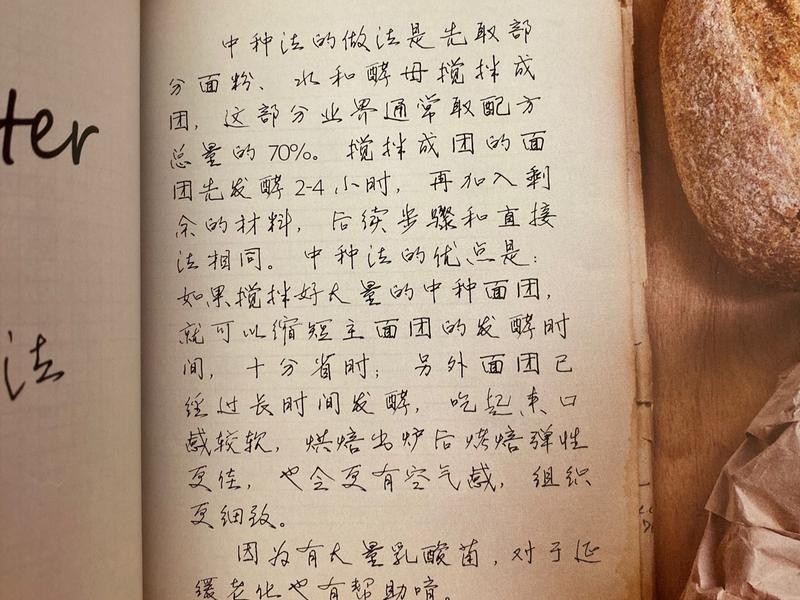 ter
法
中种法的做法是先取部
分面粉、水和酵母搅拌成
团，这部分业界通常取配方
总量的70%。搅拌成团的面
团先发酵2-4小时，再加入剩
余的材料，后续步骤和直接
法相同。中种法的优点是：
如果搅拌好大量的中种面团，
就可以缩短主面团的发酵时
间，十分省时；另外面团已
经过长时间发酵，吃起来口
感较软，烘焙出炉后烘焙弹性
更佳，也会更有空气感，组织
更细致。
因为有大量乳酸菌，对于延
缓老化也有帮助唷。